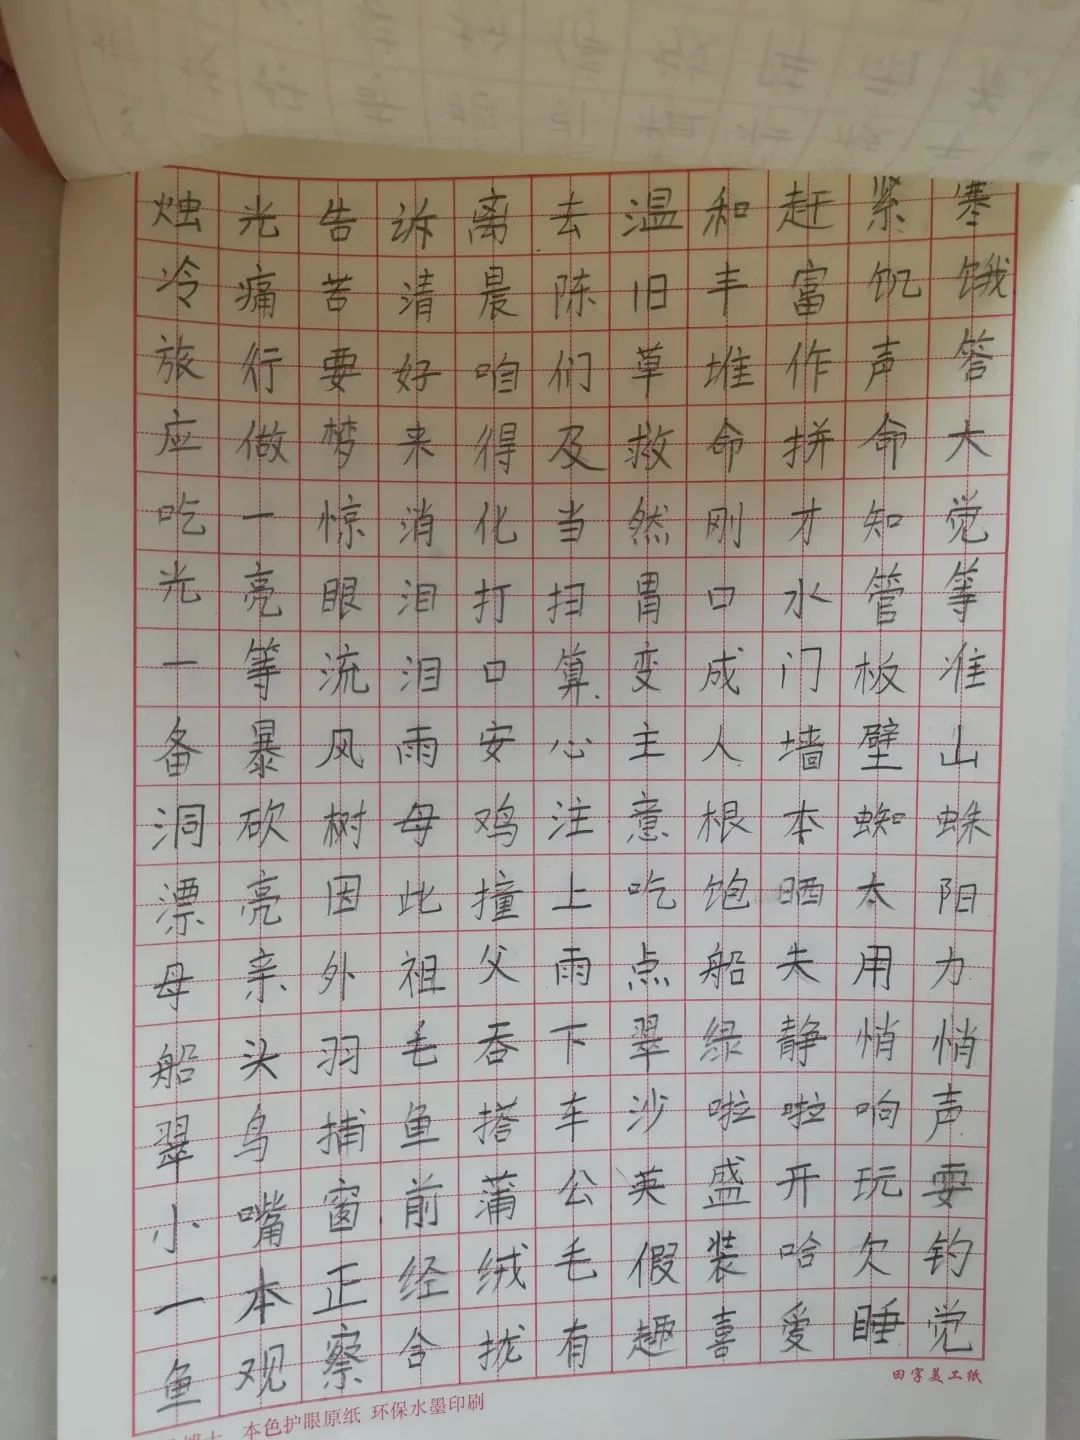 烛光告诉离去温和赶紧寒
冷痛苦清晨陈旧丰富饥饿
旅行要好咱们草堆作声答
应做梦来得及救命拼命大
吃一惊消化当然刚才知觉
光亮眼泪打扫胃口水管等
一等流泪口算变成门板准
备暴风雨安心主人墙壁山
洞砍树母鸡注意根本蜘蛛
漂亮因此撞上吃饱晒太阳
母亲外祖父雨点船夫用力
船头羽毛吞下翠绿静悄悄
翠鸟捕鱼搭车沙啦啦响声
小嘴窗前蒲公英盛开玩耍
一本正经绒毛假装哈欠钓
鱼观察合拢有趣喜爱睡觉
本色护眼原纸 环保水墨印刷
田字美工纸